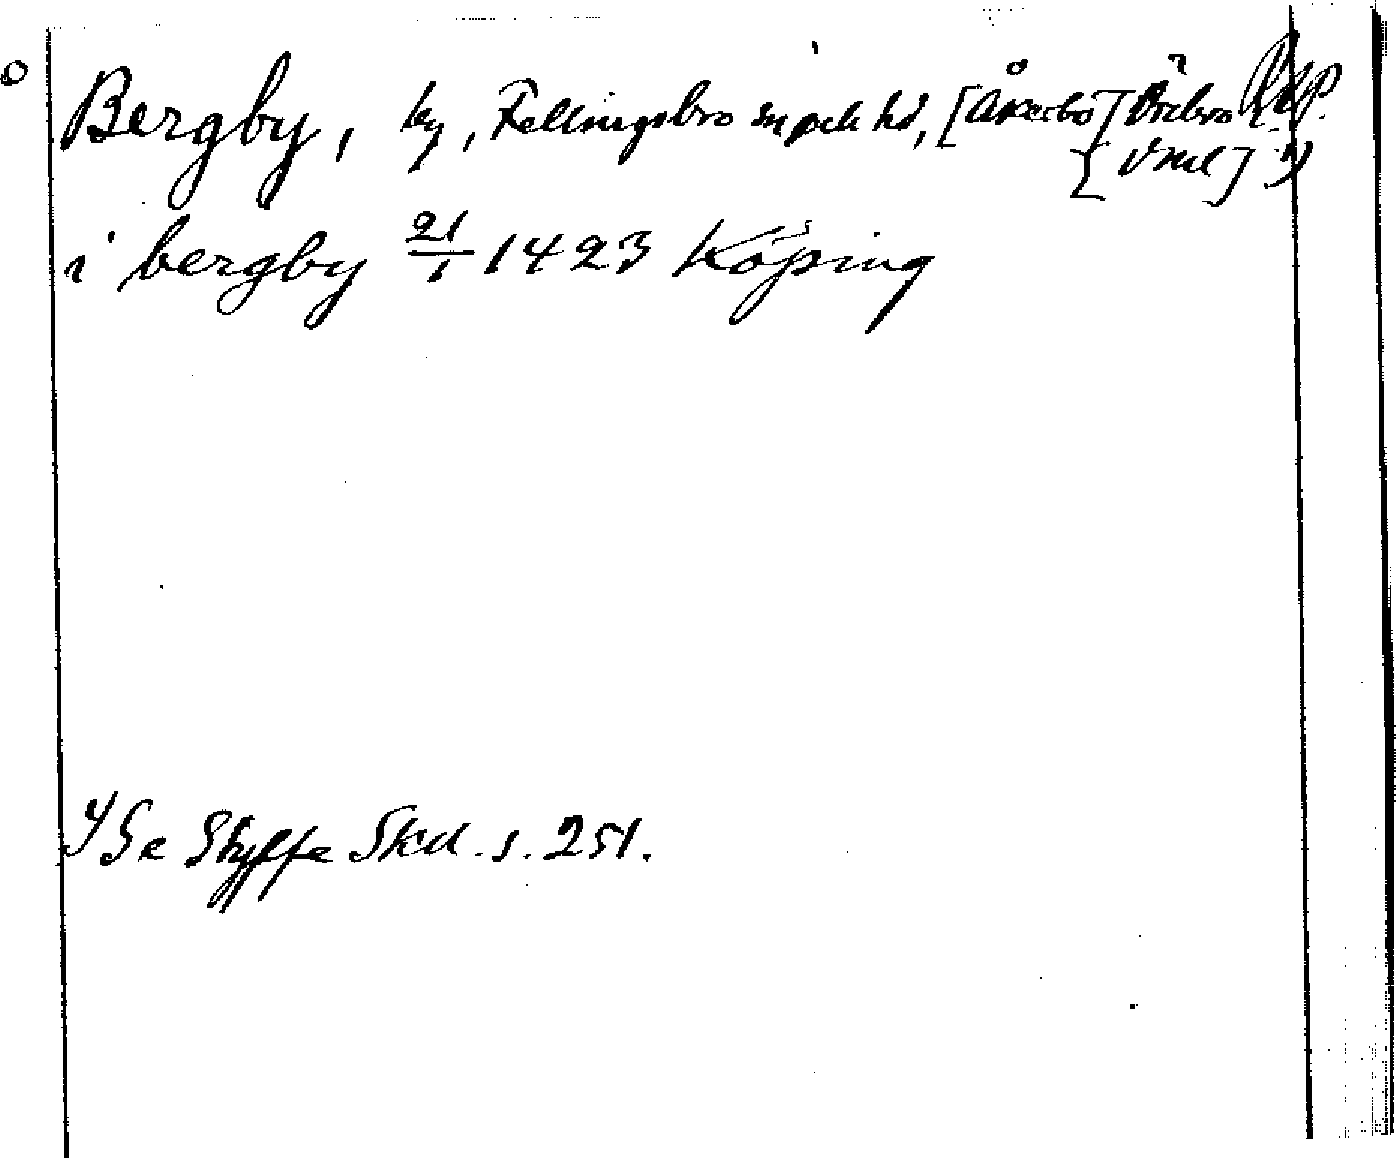 Bergby, by, Fellingsbro sn och hd, [Åkerbo] Örebro Rep.
[Vml] 1)
i bergby 21/1 1423 Köping
1) Se Styffe Skd. s. 251.